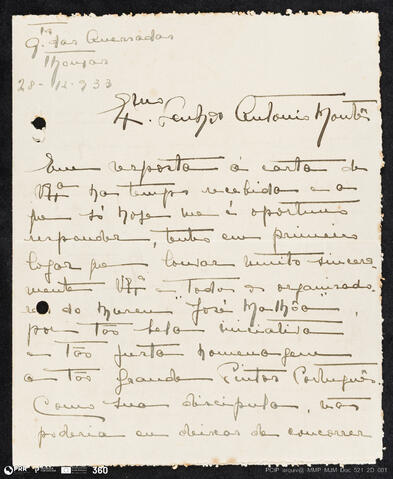 Qta das Quebradas
28-12-933
Exmo
Senhor Antonio Montês
Em resposta á carta de
V. Exa ha tempo recebida e a
que só hoje me é oportuno
responder, tenho em primeiro
logar que louvar muito sincera-
mente V. Exa e todos os organizado-
res do Museu "José Malhôa",
por tão bela iniciativa
e tão justa homenagem
a tão grande Pintor Português.
Como sua discipula, não
poderia eu deixar de concorrer
PRR
360
PCIP arquivo MMP MJM Doc 521 2D 001